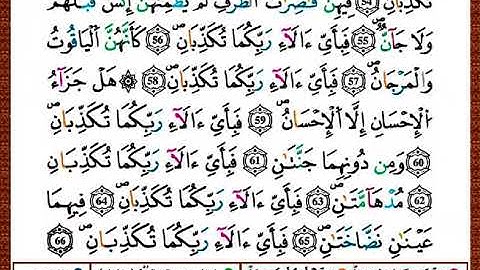 تُكَذِّبَانِ ۝54 فِيهِنَّ قَٰصِرَٰتُ ٱلطَّرْفِ لَمْ يَطْمِثْهُنَّ إِنسٌ قَبْلَهُمْ
وَلَا جَآنٌّ ۝55 فَبِأَيِّ ءَالَآءِ رَبِّكُمَا تُكَذِّبَانِ ۝56 كَأَنَّهُنَّ ٱلْيَاقُوتُ
وَٱلْمَرْجَانُ ۝57 فَبِأَيِّ ءَالَآءِ رَبِّكُمَا تُكَذِّبَانِ ۝58 ۞ هَلْ جَزَآءُ
ٱلْإِحْسَانِ إِلَّا ٱلْإِحْسَانُ ۝59 فَبِأَيِّ ءَالَآءِ رَبِّكُمَا تُكَذِّبَانِ
۝60 وَمِن دُونِهِمَا جَنَّتَانِ ۝61 فَبِأَيِّ ءَالَآءِ رَبِّكُمَا تُكَذِّبَانِ
۝62 مُدْهَآمَّتَانِ ۝63 فَبِأَيِّ ءَالَآءِ رَبِّكُمَا تُكَذِّبَانِ ۝64 فِيهِمَا
عَيْنَانِ نَضَّاخَتَانِ ۝65 فَبِأَيِّ ءَالَآءِ رَبِّكُمَا تُكَذِّبَانِ ۝66